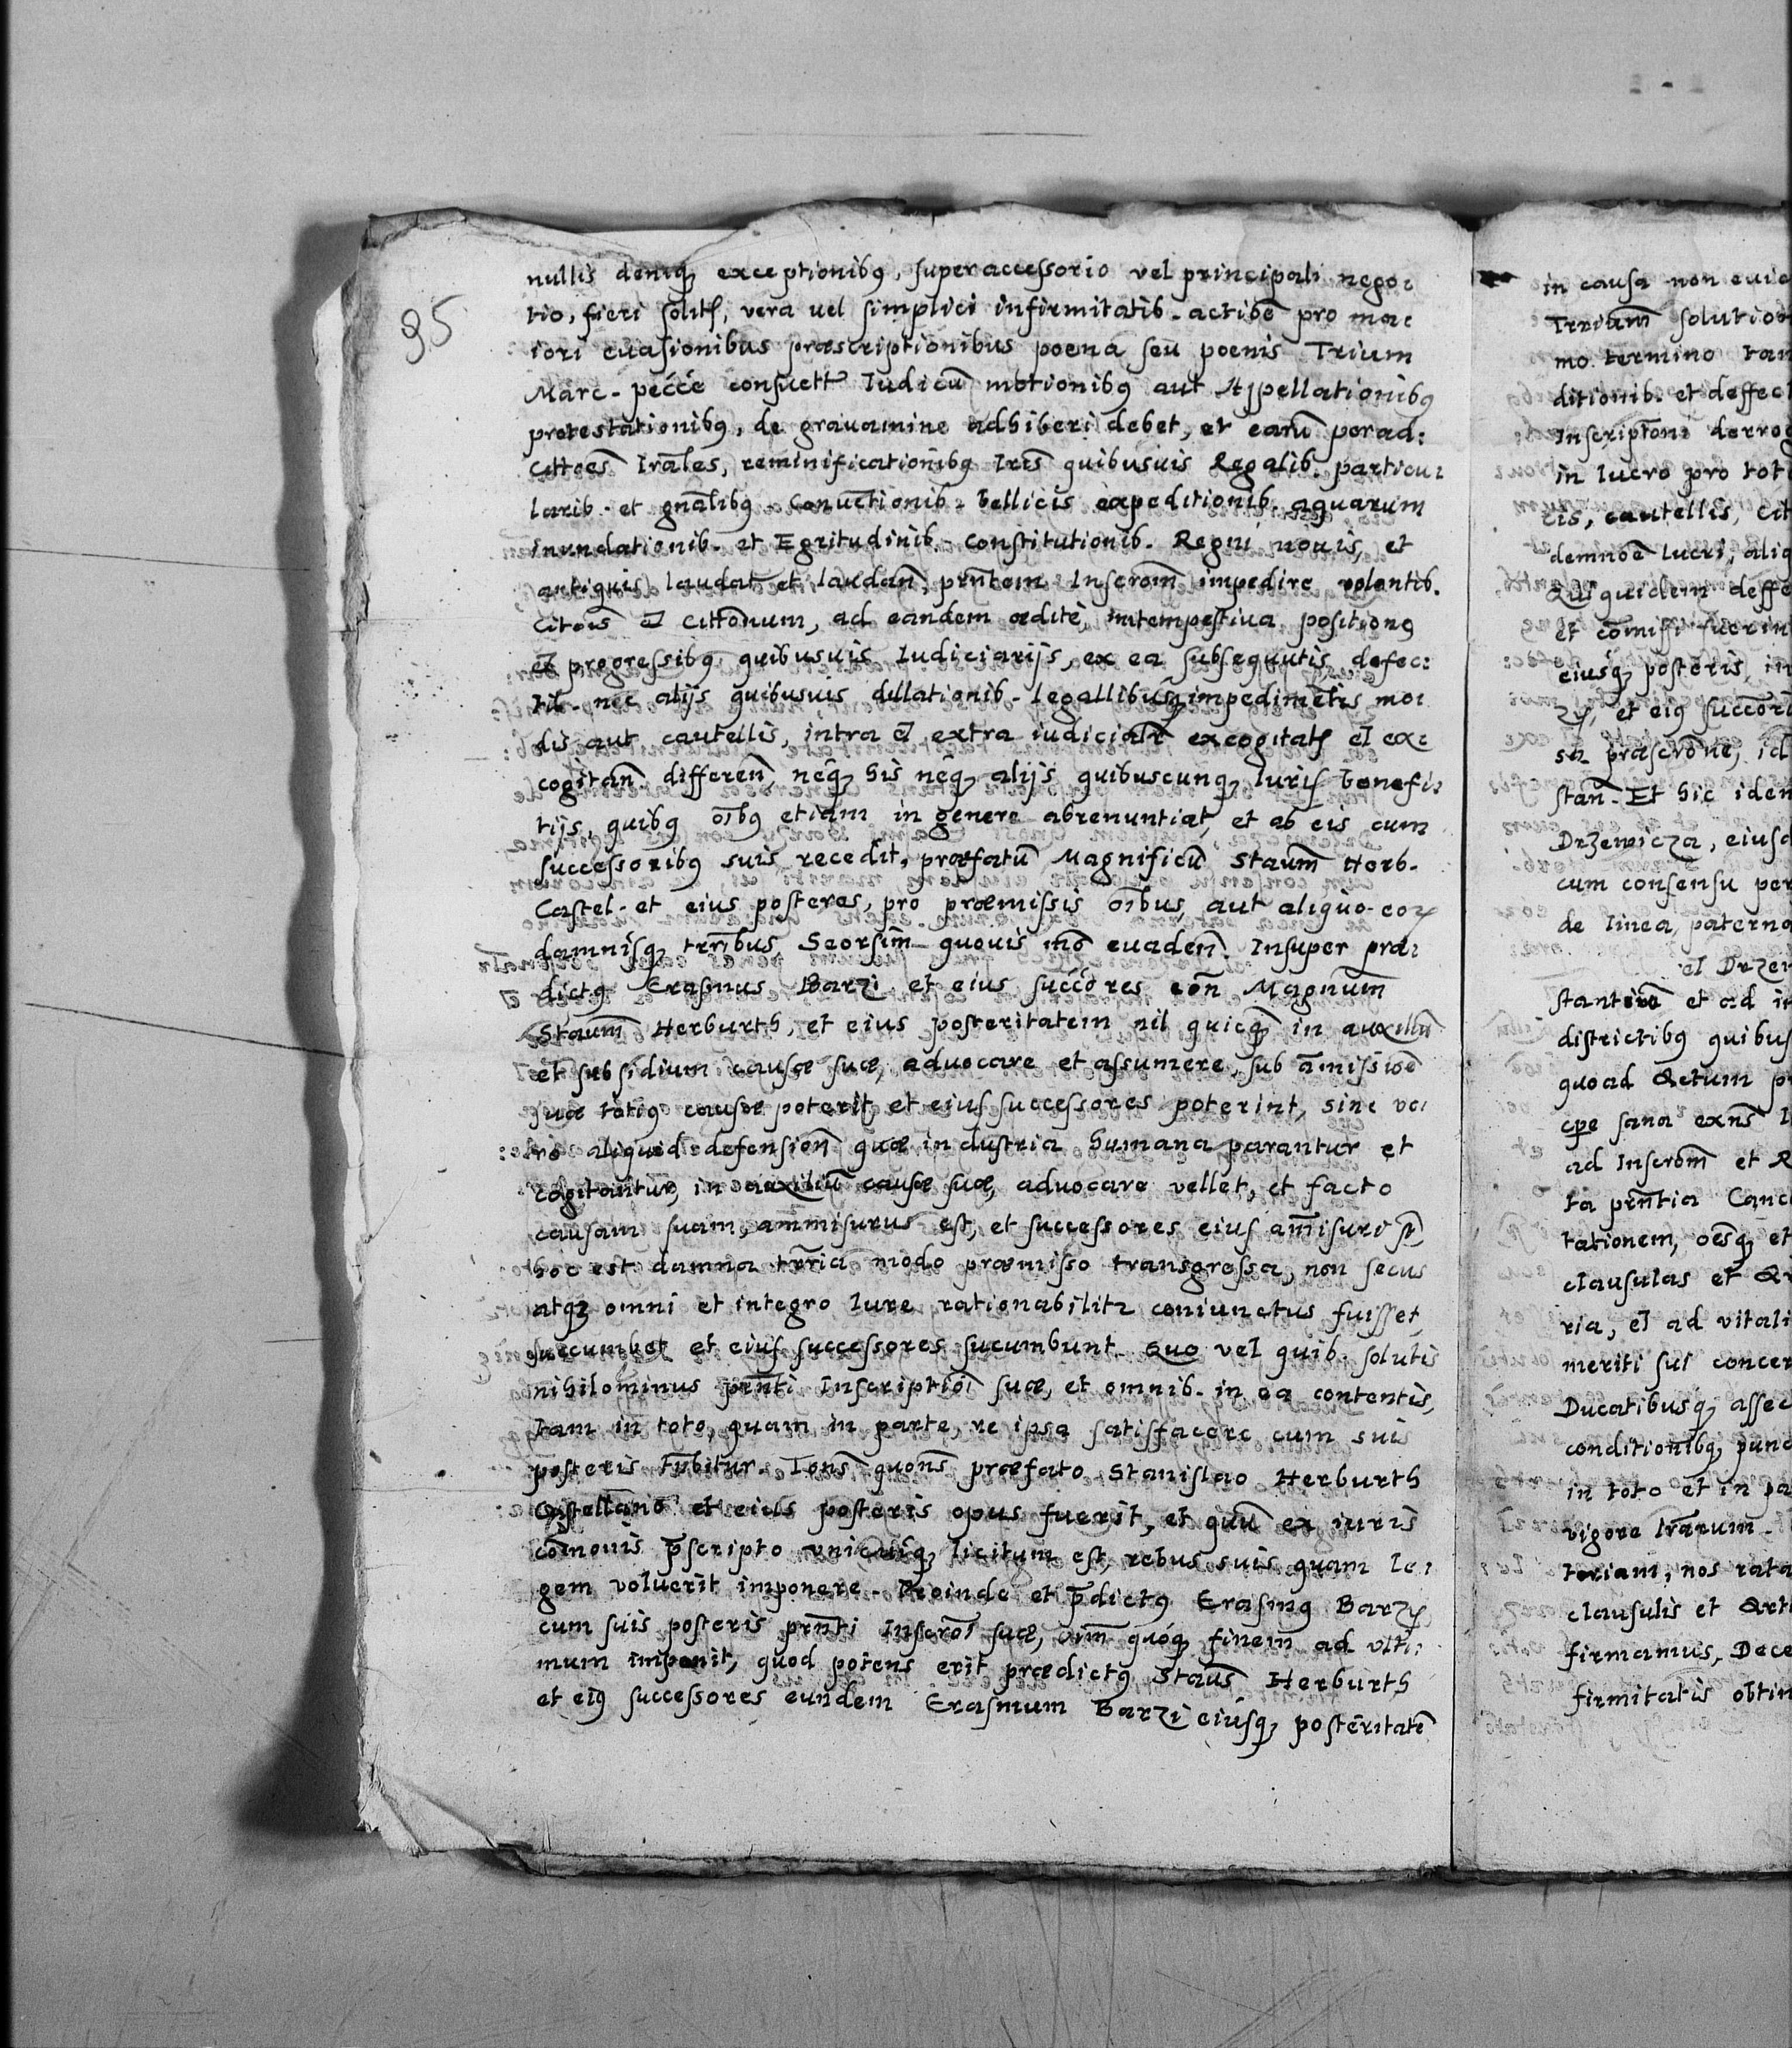 95
nullis deniq; exceptionibꝰ, super accessorio vel principali nego:
tio, fieri solitꝭ, vera uel simplici infirmitatib. actibē pro ma:
iori euasionibus præscriptionibus poena seu poenis Trium
Marc. pecce consuett Iudicū motionibꝰ aut Appellationibꝰ
protestationibꝰ, de grauamine adhiberi debet, et earū per ad:
Cittoēs Irāles, reminificationibꝰ Irīs quibusuis Regalib. particu:
larib. et gnālibꝰ Conuctionib. bellicis expeditionib. aquarum
inundationib. et Egritudinib. constitutionib. Regni nouis, et
antiquis laudat et laudan̄, prn̄tem Inscrom̄ impedire volentib.
Citois et Cittonum, ad eandem ædite, intempestiua positione
et progressibꝰ quibusuis Iudiciarijs, ex ea subsequutis, defec:
tib. nec alijs quibusuis dillationib. legallibusq; impedimētis mo:
dis aut cautellis, intra et extra iudicialr̄ excogitatꝭ et ex:
cogitan̄. differen̄, neq; his neq; alijs quibuscunq; Iuris benefi:
tijs, quibꝰ oībꝰ etiam in genere abrenuntiat, et ab eis cum
successoribꝰ suis recedit, præfatū Magnificū Staum̄ Herb.
Castel. et eius posteres, pro præmissis oībus, aut aliquo eoꝝ
damnisq; trrībus Seorsim̄ quouis mō euaden̄. Insuper præ:
dictꝰ Erasmus Barzi et eius succōres con̄ Magnum̄
Staum̄ Herburth, et eius posteritatem nil quicq̄ in auxiliū
et subsidium causæ suæ, aduocare et assumere, sub āmissioē
suæ totiꝰ causæ poterit, et eius successores poterint, sine ve:
ro aliquod defension̄ quæ industria humana parantur et
cogitantur, in auxiliū causæ suæ, aduocare vellet, et facto
causam suam, ammisurus est, et successores eius am̄isuri st̄,
hoc est damna trria modo præmisso transgressa, non secus
atq; omni et integro Iure rationabilitr coniunctus fuisset,
succumbet et eius successores sucumbunt. Quo vel quib. solutis
nihilominus prn̄ti Inscriptiōī suæ, et omnib. in ea contentis,
tam in toto, quam in parte, re ipsa satisfacere cum suis
posteris Tn̄bitur. Tons̄ quons̄ præfato Stanislao Herburth
Castellano et eius posteris opus fuerit, et quū ex iuris
cōmonis p̄scripto vnicuiq; licitum est, rebus suis quam le:
gem voluerit imponere. Proinde et p̄dictꝰ Erasmꝰ Barzy
cum suis posteris prn̄ti Inscroī suæ, vim̄ quoq; finem ad vlti:
mum imponit, quod potens erit prædictꝰ Staus̄ Herburth
et eiꝰ successores eundem Erasmum Barzi eiusq; posteritatē
in causa non euic
Trrium̄ solution
mo. termino tan
ditionib. et deffect
Inscripton̄i derrog
in lucro pro tot
cis, cautellis, Cit
demnoē lucri, aliq
Qui quidem deffe
et cōmissi fuerin
eiusq; posteris, in
zy, et eiꝰ succorē
sa præscrōne, id
stan̄. Et hic iden
Drzewicza, eiusd
cum consensu per
de linea paterna
el Drzew
et ad in
districtibꝰ quibus
quoad Actum pr
cpe sana exn̄s I
ad Inscrom̄ et R
ta prn̄tia Canc
tationem, oēsq; et
clausulas et Ar
ria, el ad vitali
meriti sui concer
Ducatibusq; assec
conditionibꝰ, punc
in toto et in pa
vigore Irārum.
toriam, nos rata
clausulis et Arti
firmamus, Dece
firmitatis obtin